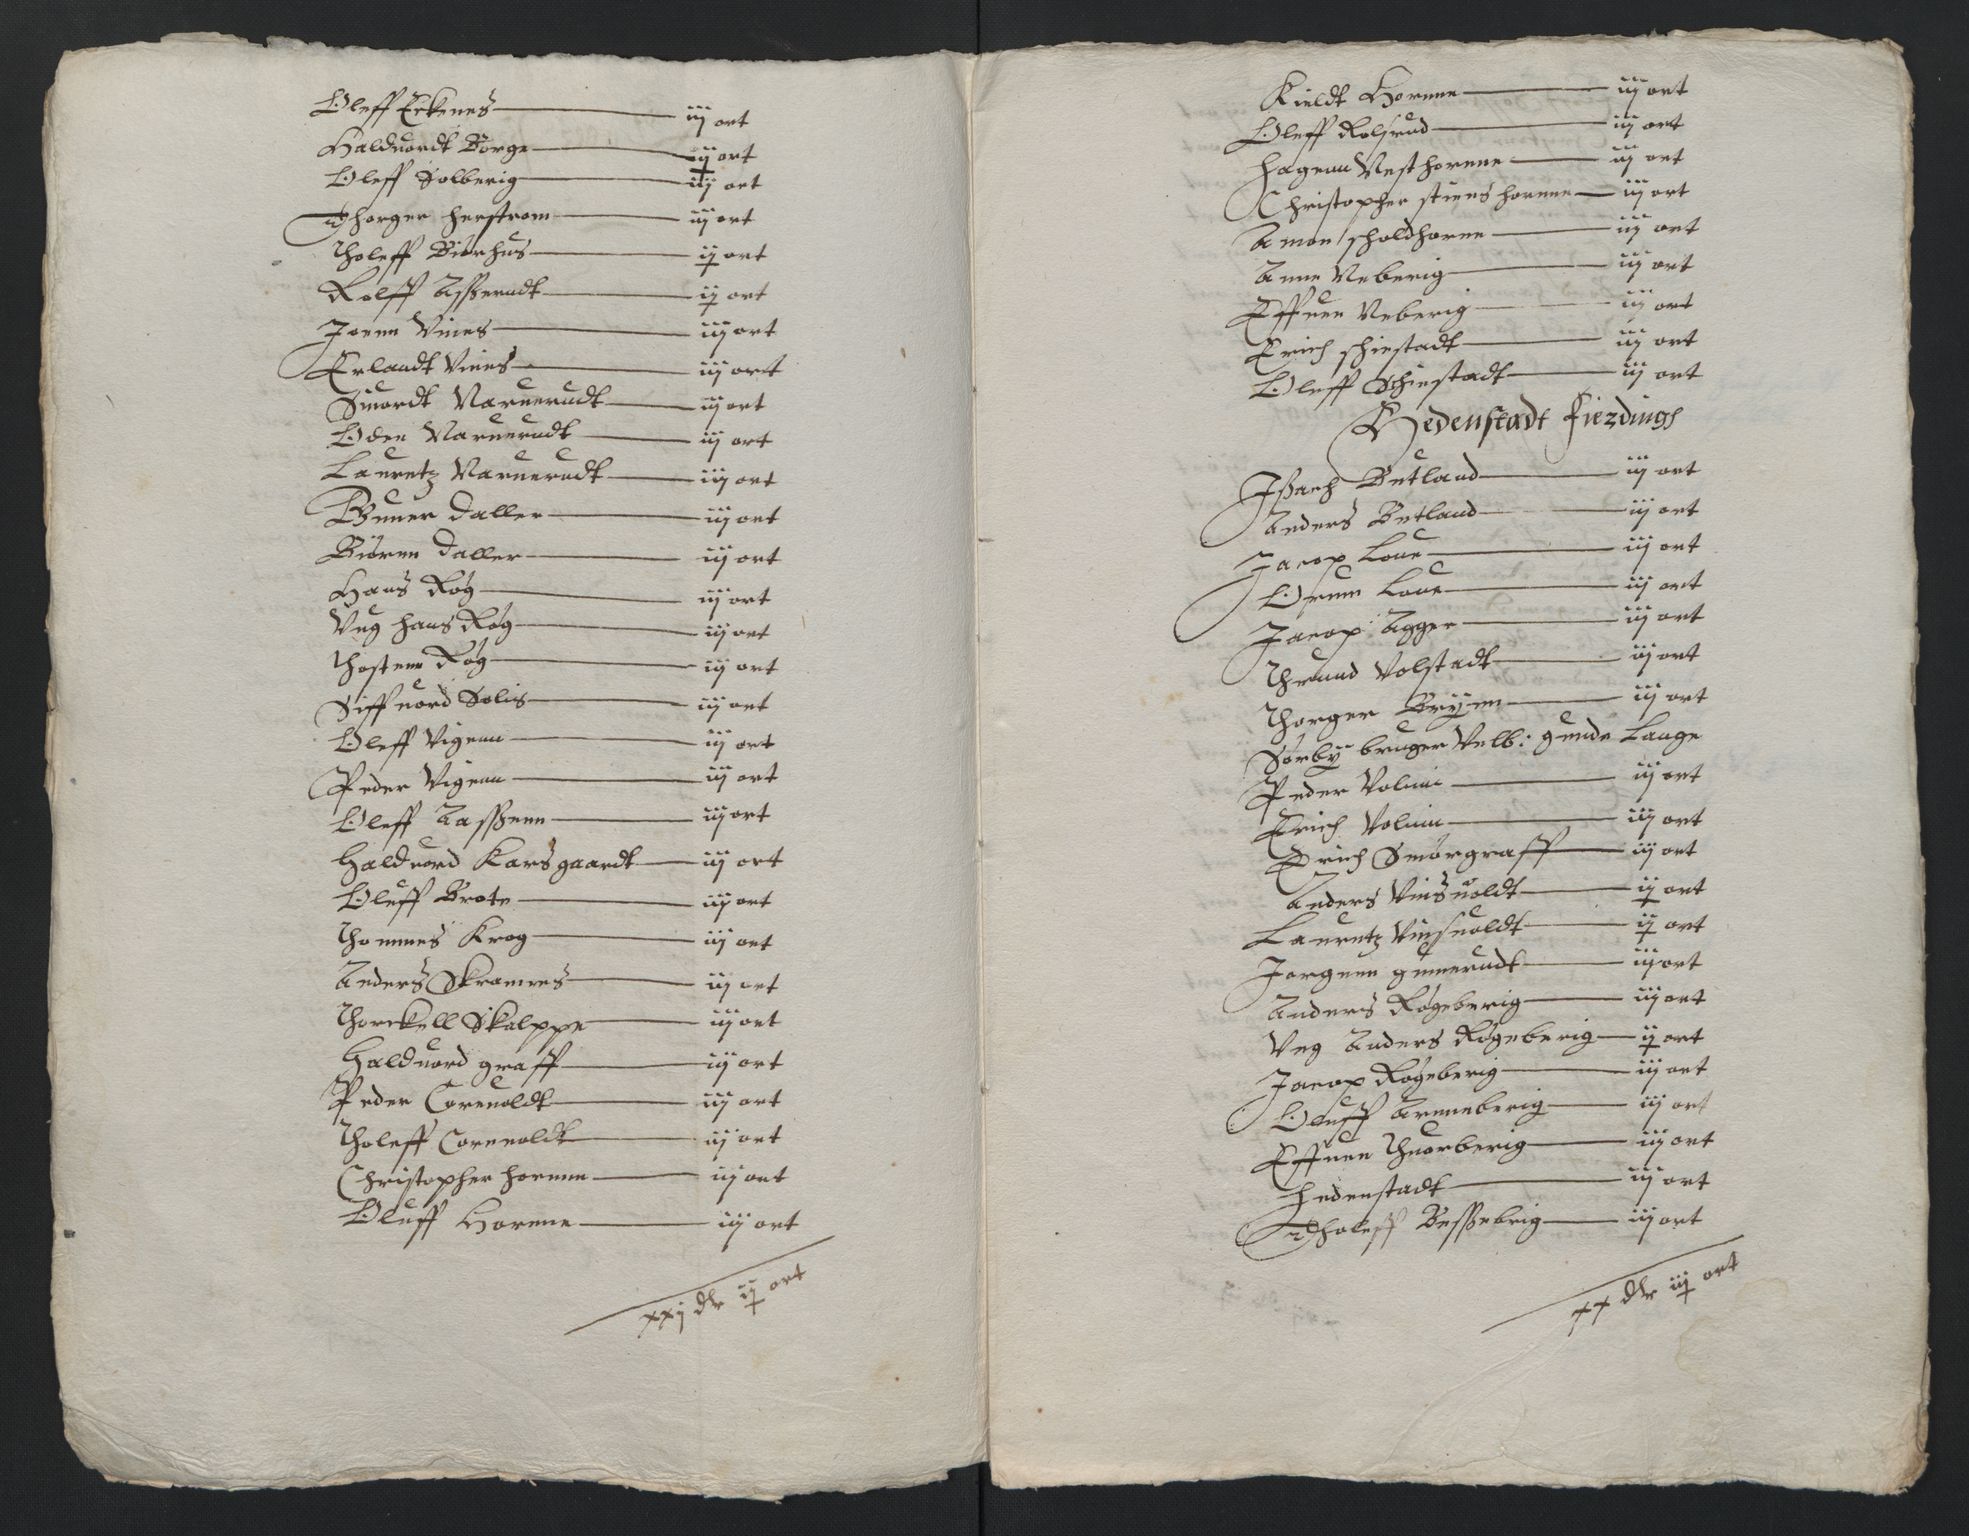 Oleff Eckenes — iij ort
Halduordt Borge — ij ort
Oleff Solberig — iij ort
Thorger herstrom — iij ort
Tholeff Biørhus — ij ort
Rolff Asserudt — ij ort
Joenn Vines — iij ort
Erlandt Vines — iij ort
Siuordt Naruerudt — iij ort
Oden Naruerudt — iij ort
Lauretz Naruerudt — iij ort
Gunner Daller — iij ort
Biørnn Daller — iij ort
Hans Røg — iij ort
Vng hans Røg — iij ort
Thostenn Røg — iij ort
Siffuord Solis — iij ort
Oleff Vigenn — iij ort
Peder Vigenn — iij ort
Oleff Aassenn — iij ort
Halduord Karsgaardt — iij ort
Oluff Brote — iij ort
Thommes Krog — iij ort
Anders Skramnes — iij ort
Thorckell Skalppe — iij ort
Halduord graff — iij ort
Peder Coruoldt — iij ort
Tholeff Coruoldt — iij ort
Christopher hornnn — iij ort
Oluff Hornne — iij ort
xxj dlr ij ort
Kieldt Hornne — iij ort
Oleff Rolsrud — iij ort
Hagenn Vesthornne — iij ort
Christopher stiens hornne — iij ort
Amon skoldhorne — iij ort
Anne Neberig — iij ort
Effuen Neberig — iij ort
Erich schiestadt — iij ort
Oleff Schiestadt — iij ort
Hedenstadt Fierdings
Issach Butland — iij ort
Anders Butland — iij ort
Jacop Loue — iij ort
Ormm Loue — iij ort
Jacop Agger — iij ort
Thrund Volstadt — iij ort
Thorger Brynn — iij ort
Sørby bruger Velb: gunde Lange
Peder Voluin — iij ort
Erich Voluin — iij ort
Erich Smørgraff — iij ort
Anders Vinsuoldt — ij ort
Lauretz Vinsuoldt — ij ort
Jorgenn gunnerudt — iij ort
Anders Røgeberig — iij ort
Vng Anders Røgeberig — ij ort
Jacop Røgeberig — iij ort
Oluff Arnneberig — iij ort
Effuen Thuorberig — iij ort
Hedenstadt — iij ort
Tholeff Bessebrig — iij ort
xx dlr iij ort